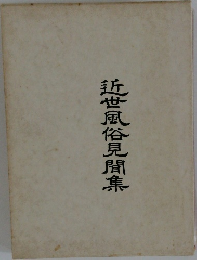 近世風俗見聞集